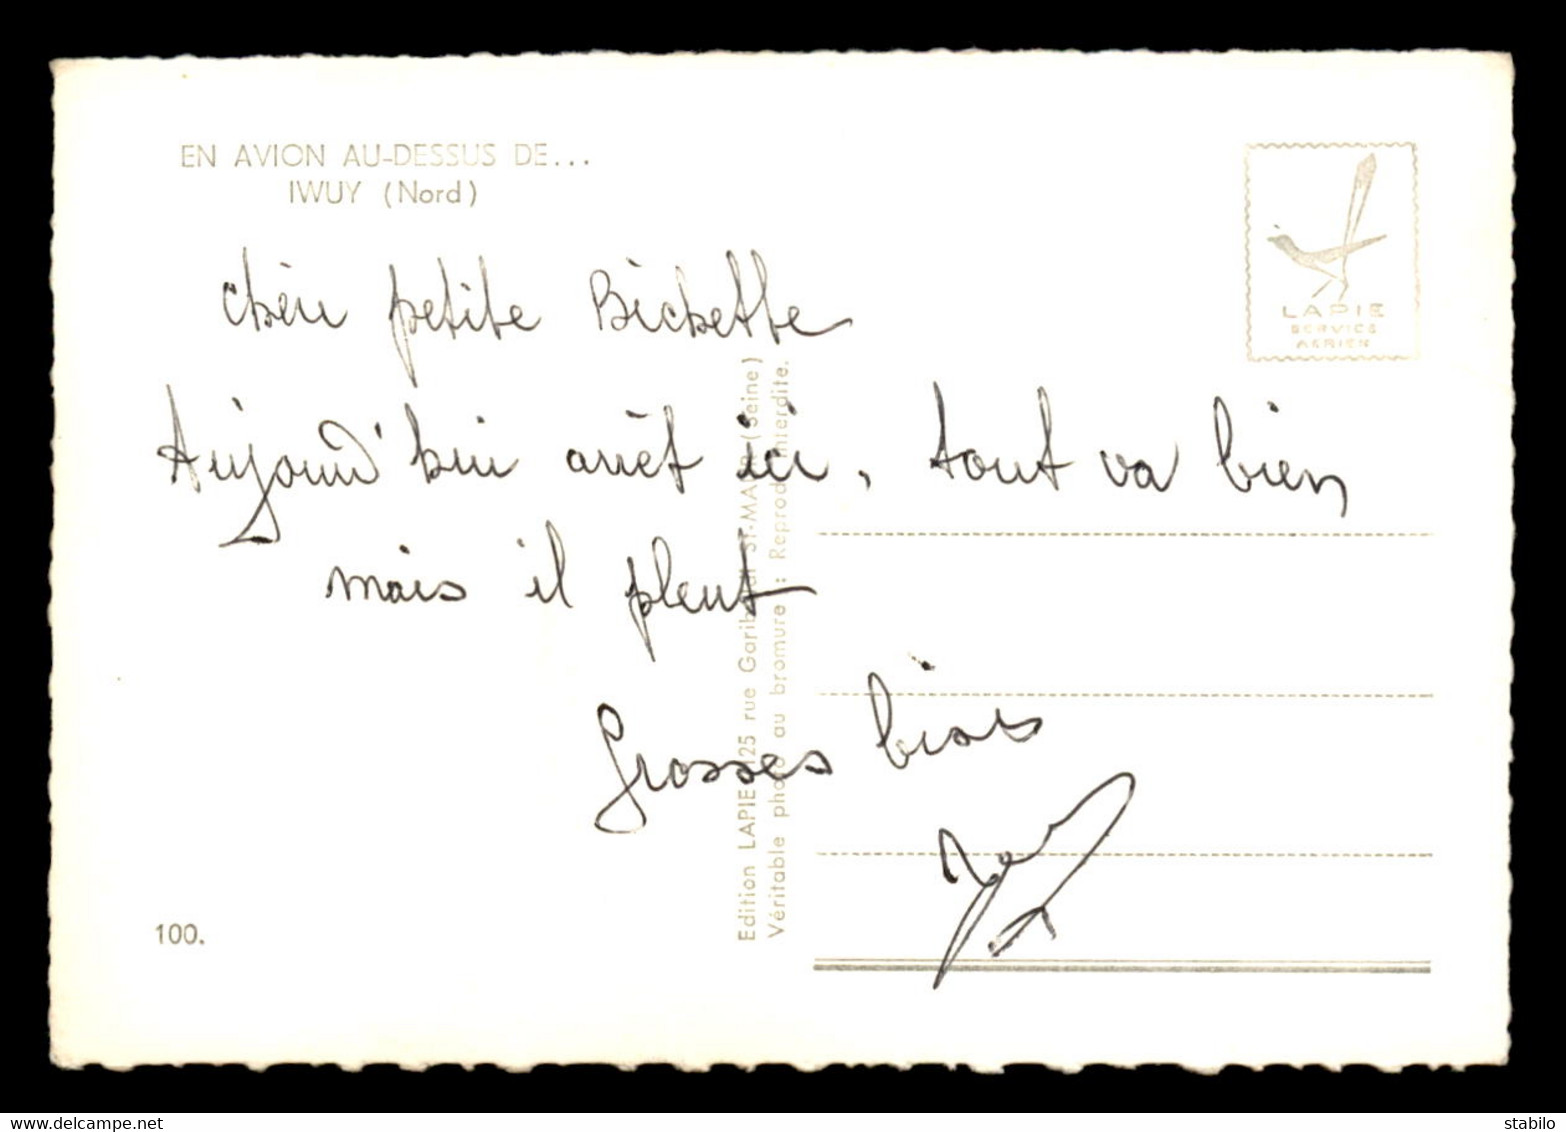 EN AVION AU-DESSUS DE...
IWUY (Nord)
LAPIE
SERVICE
AERIEN
chère petite Bichette
Aujourd'hui arrêt ici, tout va bien
mais il pleut
Grosses bises
Edition LAPIE 125 rue Garibaldi ST-MAUR (Seine)
Véritable photo au bromure : Reprod. interdite.
100.
delcampe.net
stabilo